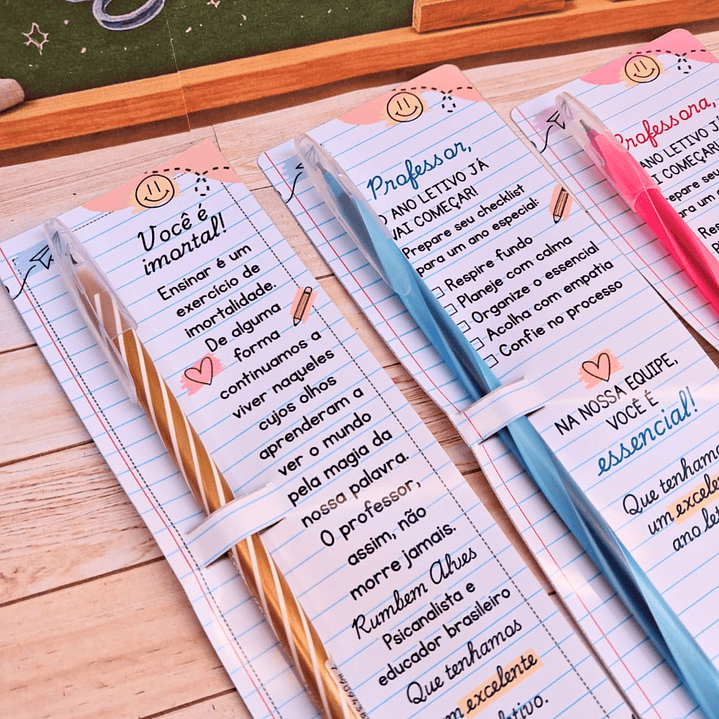 Você é
imortal!
Ensinar é um
exercício de
imortalidade.
De alguma
forma
continuamos a
viver naqueles
cujos olhos
aprenderam a
ver o mundo
pela magia da
nossa palavra.
O professor,
assim, não
morre jamais.
Rumbem Alves
Psicanalista e
educador brasileiro
Que tenhamos
um excelente
letivo.
Professor,
O ANO LETIVO JÁ
VAI COMEÇAR!
Prepare seu checklist
para um ano especial:
Respire fundo
Planeje com calma
Organize o essencial
Acolha com empatia
Confie no processo
NA NOSSA EQUIPE,
VOCÊ É
essencial!
Que tenhamos
um excelente
ano
Professora,
ANO LETIVO JÁ
VAI COMEÇAR!
Prepare seu
para um